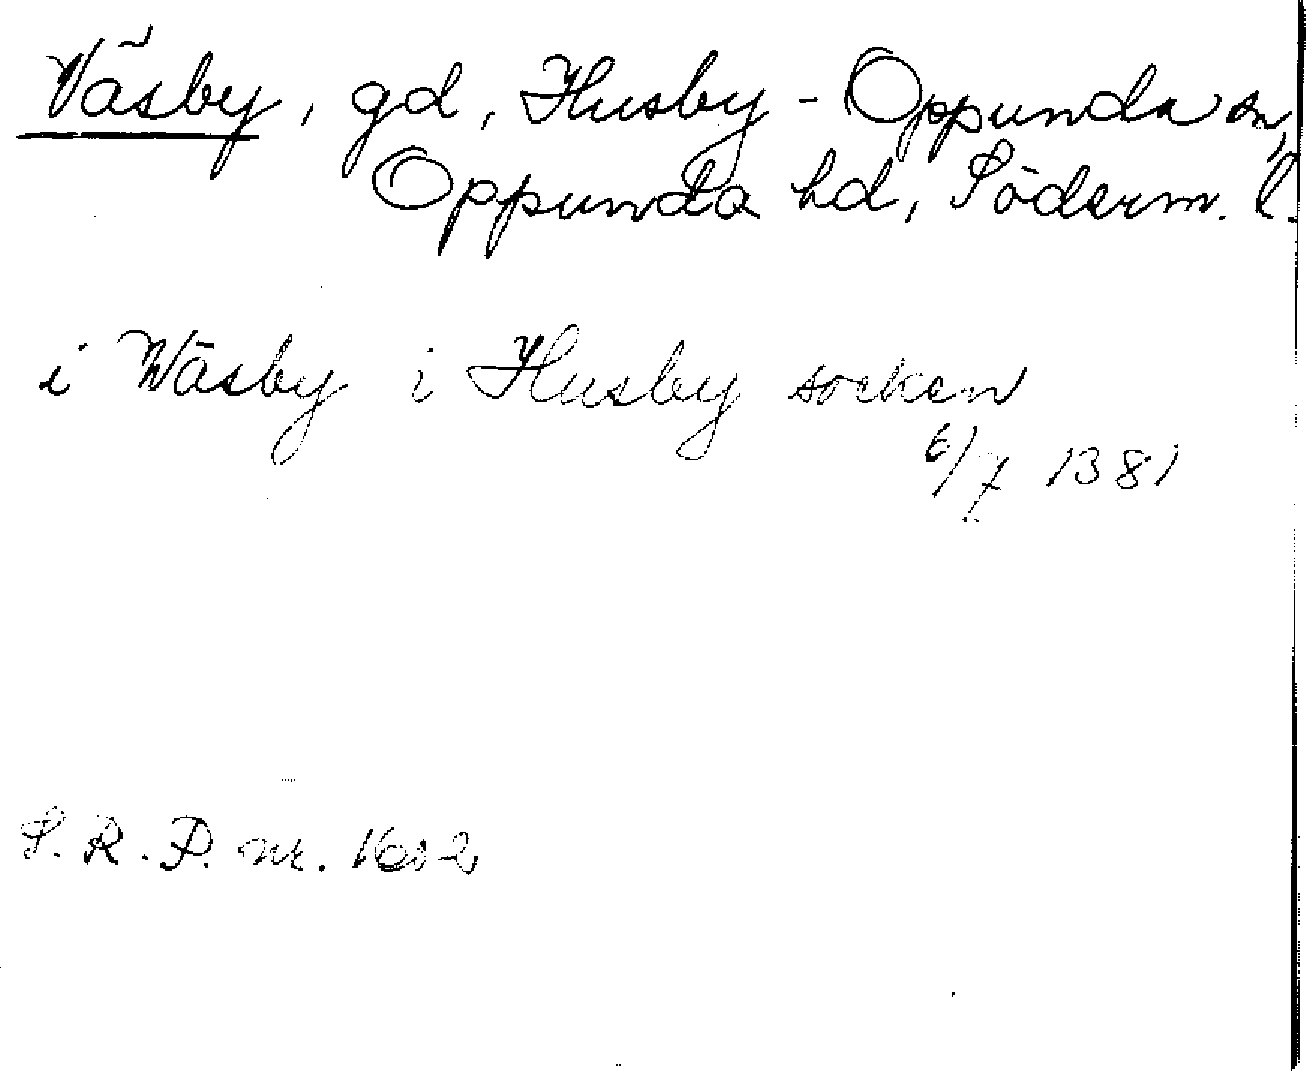 Väsby, gd, Husby-Oppunda sn,
Oppunda hd, Söderm. l.
i Wäsby i Husby socken
6/7 1381
S. R. P. nr. 1602